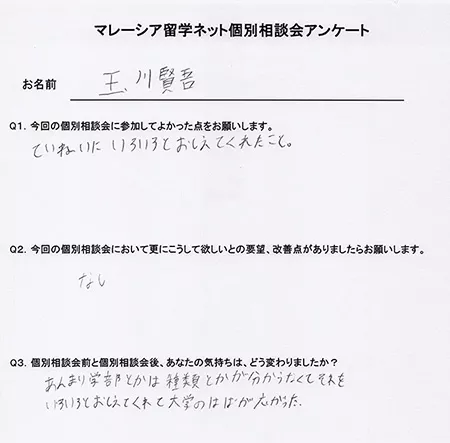 マレーシア留学ネット個別相談会アンケート
お名前 玉川賢吾
Q1. 今回の個別相談会に参加してよかった点をお願いします。
ていねいにいろいろとおしえてくれたこと。
Q2. 今回の個別相談会において更にこうして欲しいとの要望、改善点がありましたらお願いします。
なし
Q3. 個別相談会前と個別相談会後、あなたの気持ちは、どう変わりましたか？
あんまり学部とかは種類とかが分からなくてそれを
いろいろとおしえてくれて大学のはばが広がった.